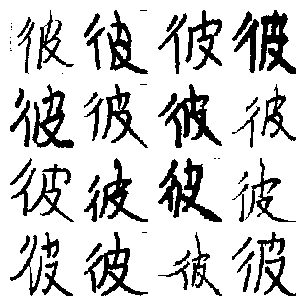 彼彼彼彼
彼彼彼彼
彼彼彼彼
彼彼彼彼